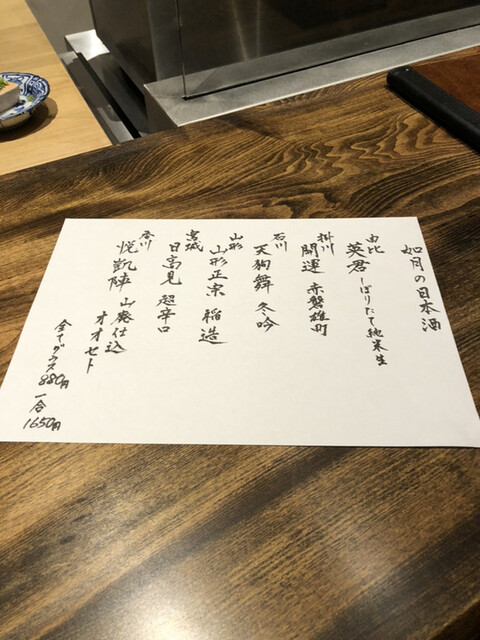 如月の日本酒
由比
英君 しぼりたて純米生
掛川
開運 赤磐雄町
石川
天狗舞 冬吟
山形
山形正宗 稲造
宮城
日高見 超辛口
香川
悦凱陣 山廃仕込
オオセト
全てグラス880円 一合1650円